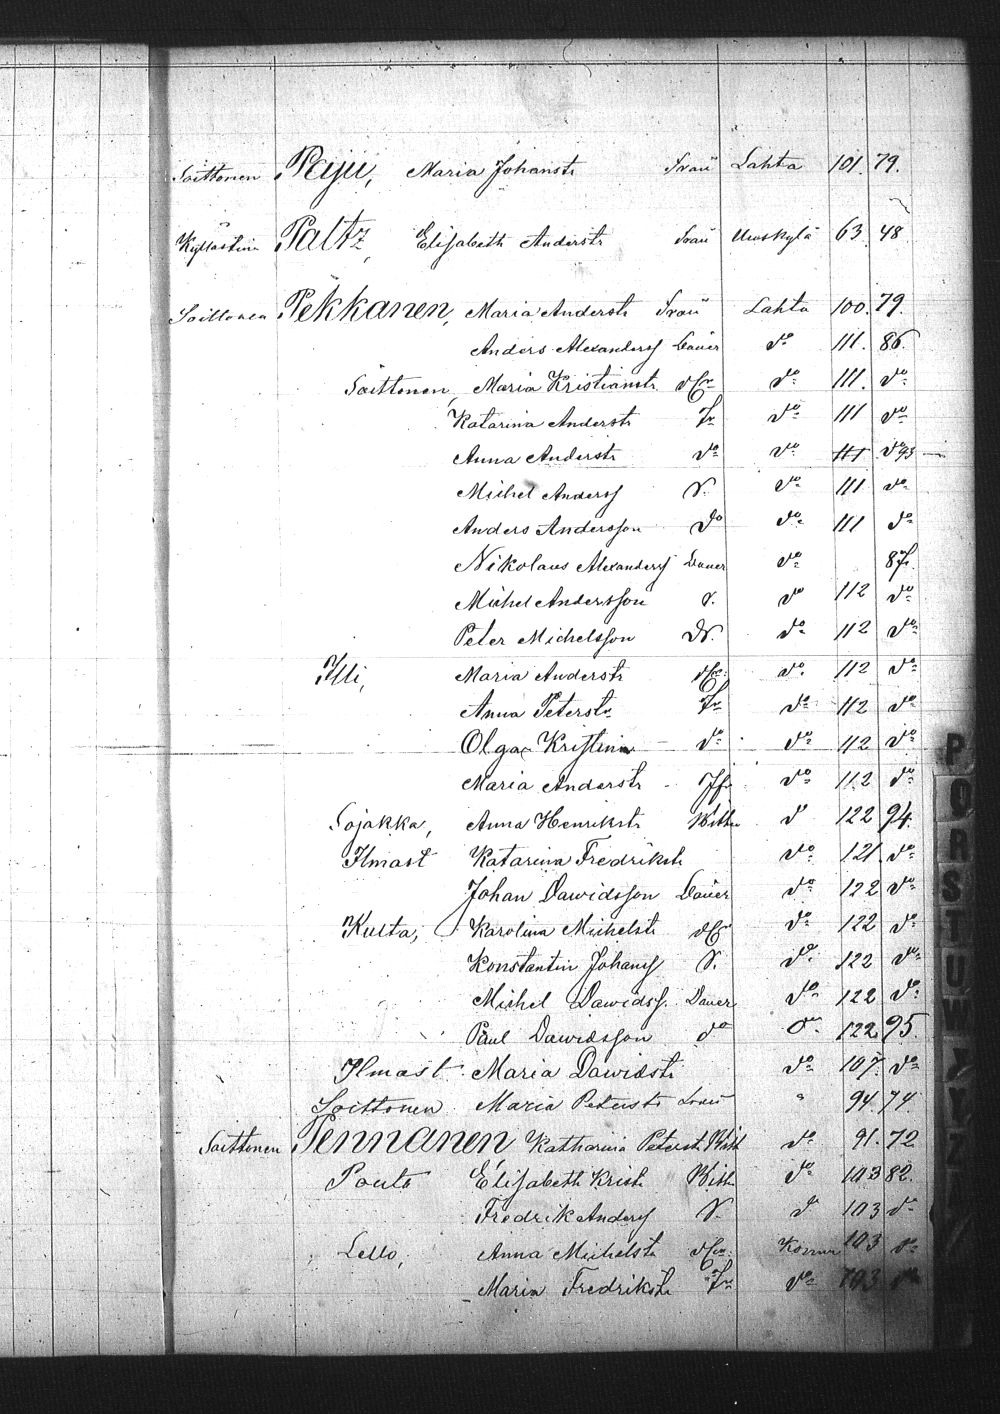 Soittonen Paju, Maria Johanstr Frau Lahta 101. 79.
Paltz, Elisabeth Anderstr Frau Uuskylä 63. 48
Soittonen Pekkanen, Maria Anderstr Frau Lahta 100. 79.
Anders Alexanderss Bauer do 111. 86.
Soittonen, Maria Kristianstr do 111. do
Katarina Anderstr Tr do 111 do
Anna Anderstr do do 111 do 93
Michel Anderss S. do 111 do
Anders Andersson do do 111 do
Nikolaus Alexanderss Bauer do 87.
Michel Andersson S. do 112 do
Peter Michelsson do 112 do
Illi, Maria Anderstr do 112 do
Anna Peterstr Tr do 112 do
Olga Kristina do do 112 do
Maria Anderstr do 112 do
Sojakka, Anna Henrikstr Witwe do 122 94.
Ilmast Katarina Fredrikstr do 121. do
Johan Dawidsson Bauer do 122 do
Kulta, Karolina Michelstr do 122 do
Konstantin Johanss S. do 122 do
Michel Dawidss. Bauer do 122 do
Paul Dawidsson do do 122 95.
Ilmast Maria Dawidstr do 107. do
Soittonen Maria Peterstr Frau " 94. 74.
Soittonen Pennanen Katharina Peterstr Witw do 91. 72
Pouta Elisabeth Kristr Witw do 103 82.
Fredrik Anderss S. do 103 do
Lello, Anna Michelstr 103 do
Maria Fredrikstr Tr do 103 do
P
O
R
S
T
U
W
Y
Z